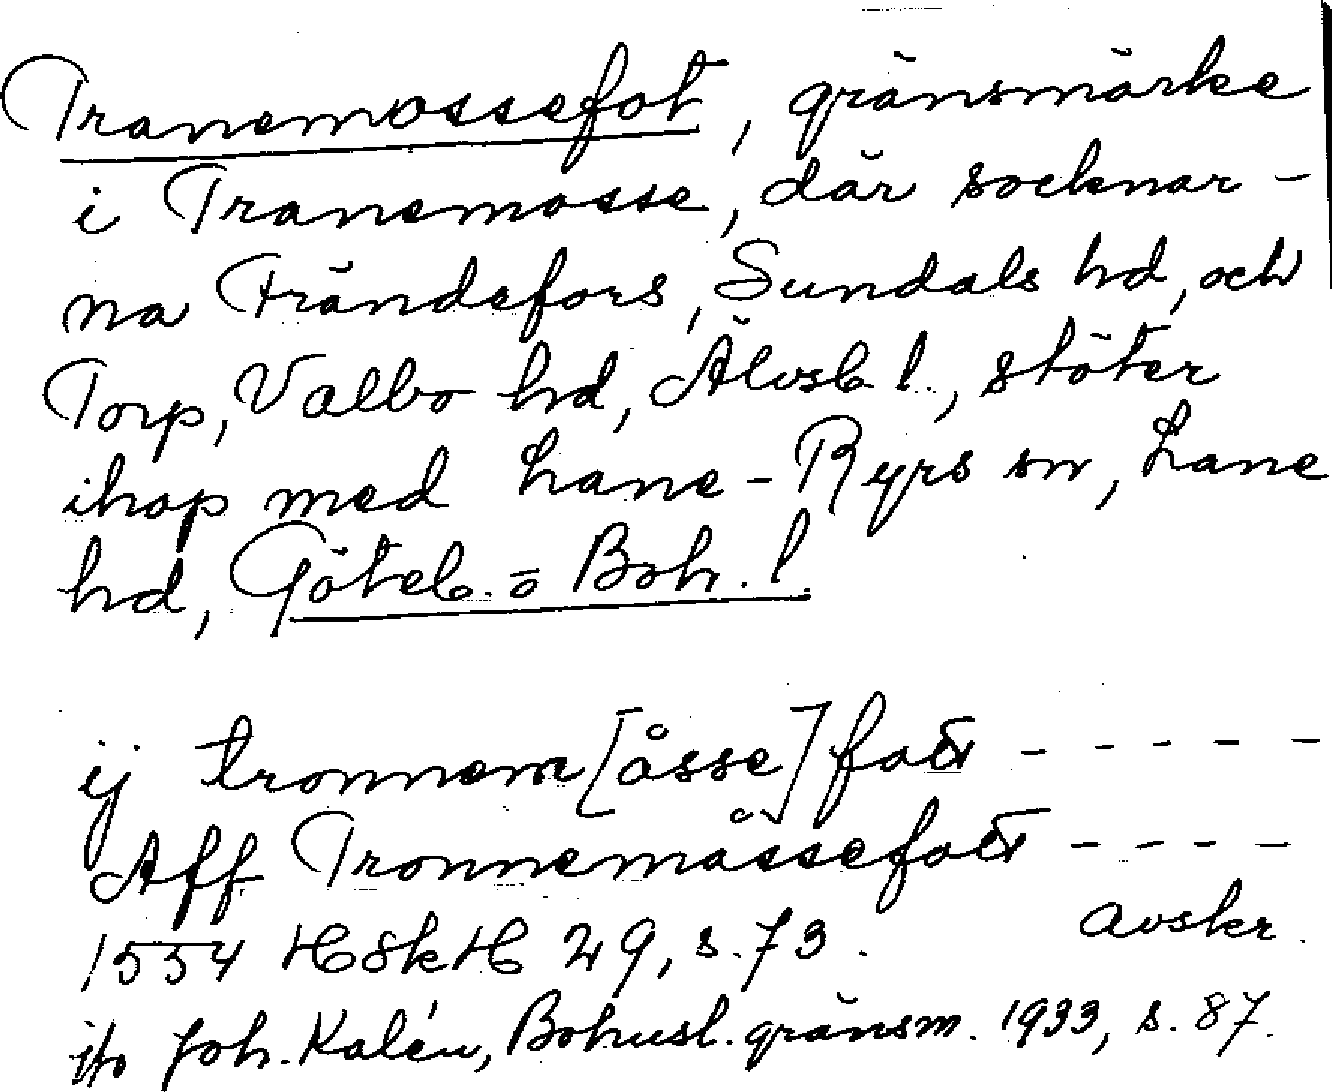 Tranemossefot, gränsmärke
i Tranemosse, där socknar-
na Frändefors, Sundals hd, och
Torp, Valbo hd, Älvsb l., stöter
ihop med Lane-Ryrs sn, Lane
hd, Göteb. o Boh. l.
ij tronnem[åsse]foet - - - - -
Aff Tronnemåssefoet - - - -
1554 HSkH 29, s. 73. avskr.
jfr Joh. Kalén, Bohusl. gränsm. 1933, s. 87.